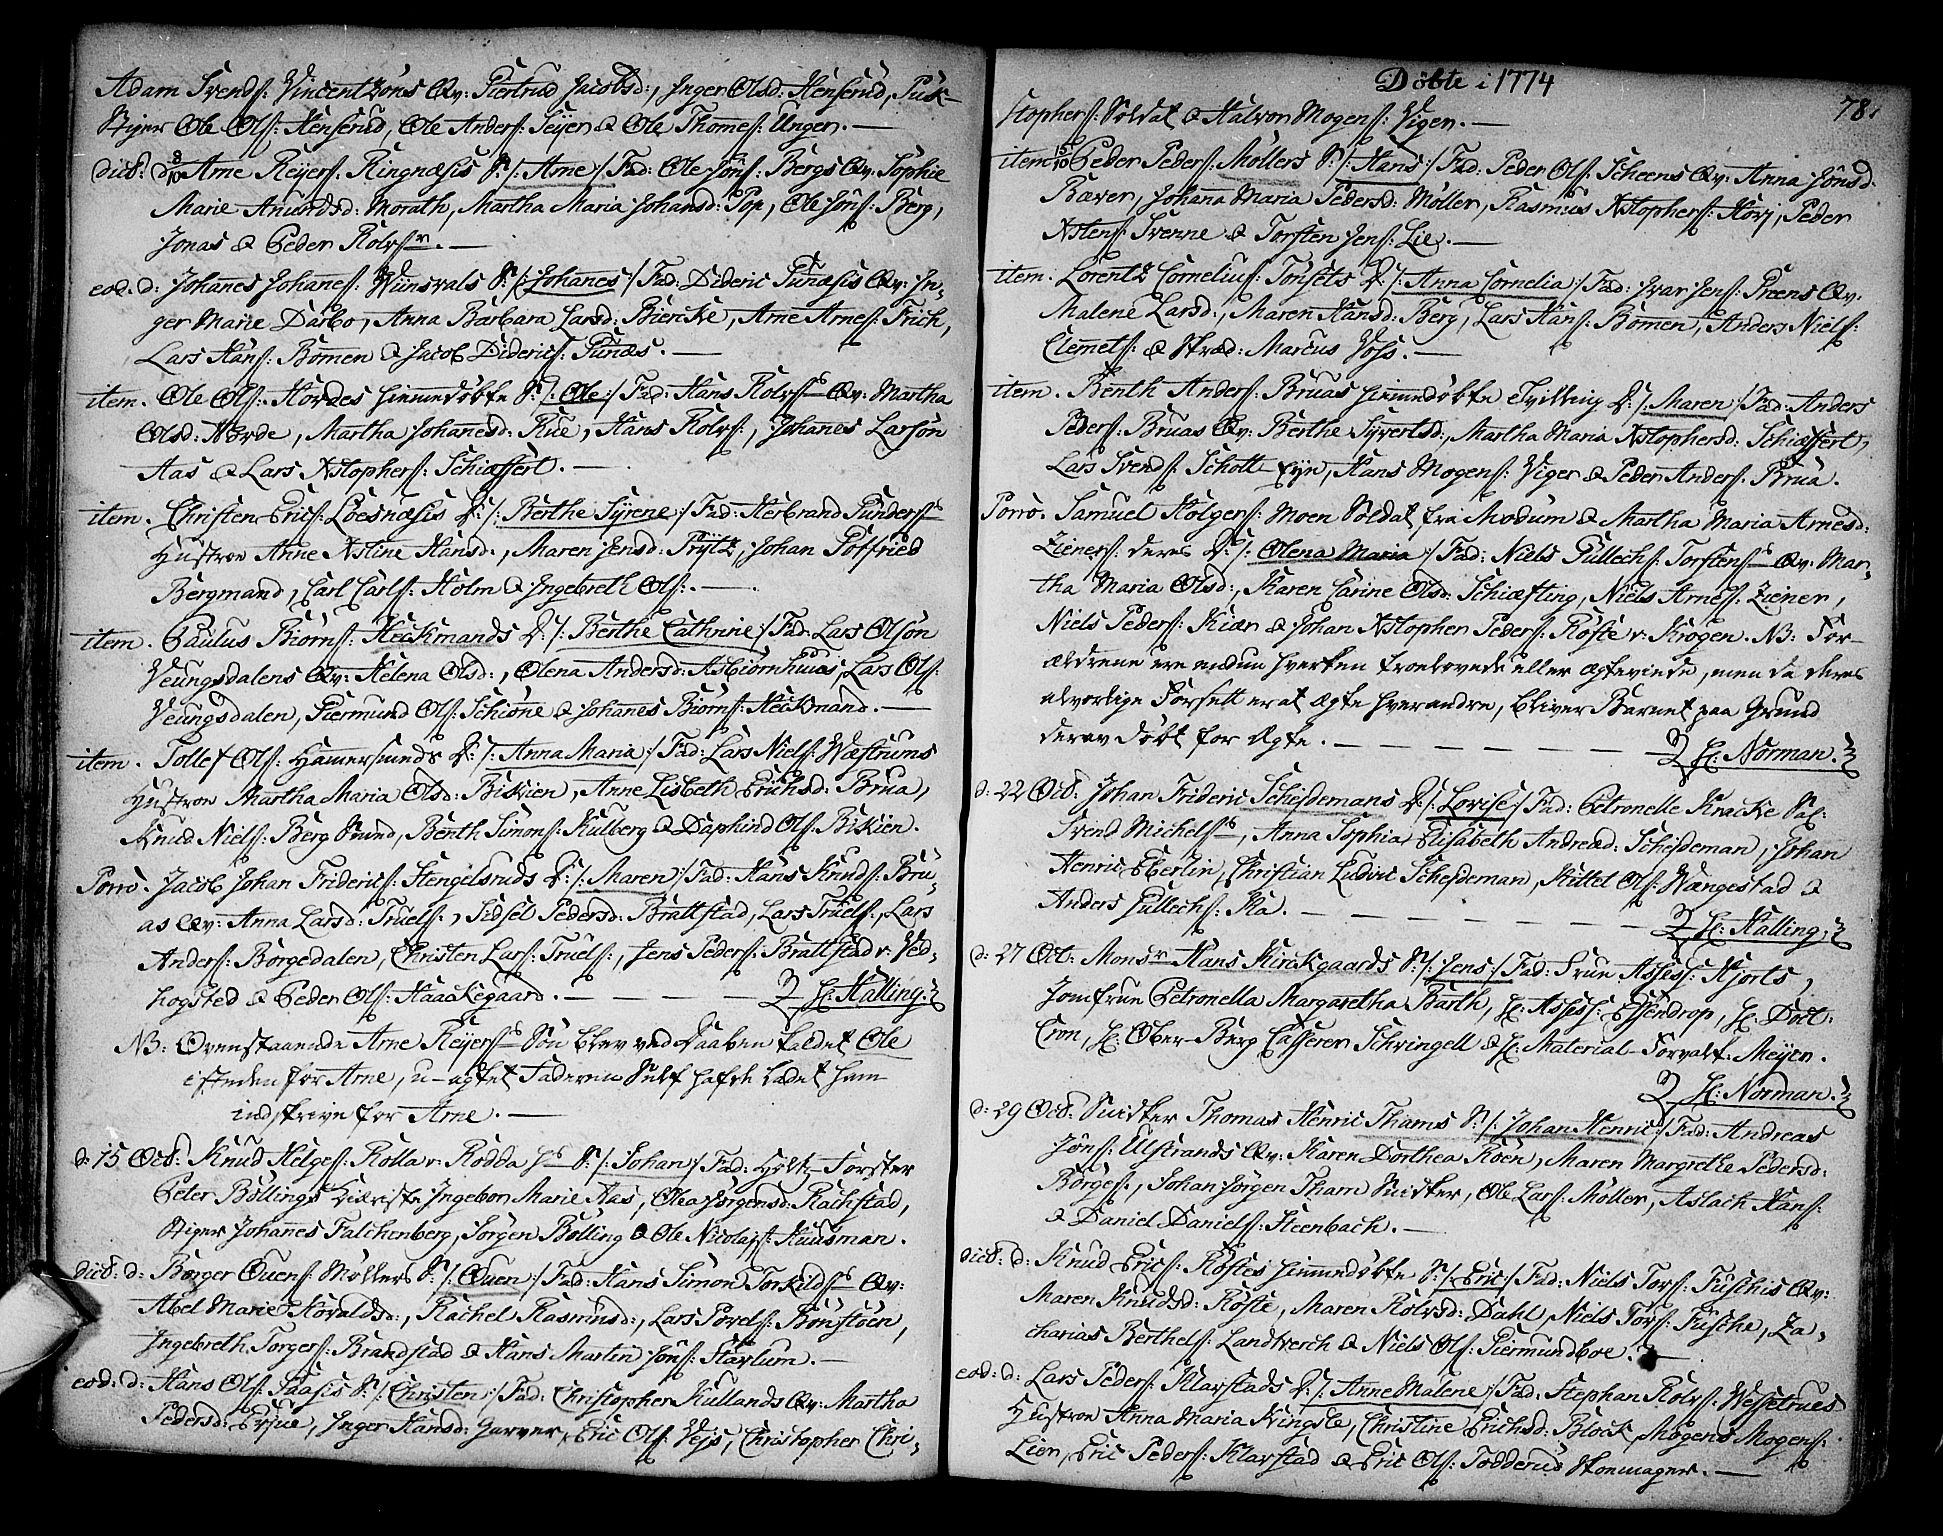 Adam Svends: Vincentzöns Qv: Giertrud Jacobsd:, Inger Olsd: Henserud, Puk-
Stiger Ole Ols: Henserud, Ole Anders: Teyen & Ole Thomes: Unger. —
dict: d: 8/10 Arne Reyers: Ringnæsis S: /: Arne :/ Fad: Ole Jöns: Bergs Qv: Sophie
Marie Anundsd: Morath, Martha Maria Johansd: Pop, Ole Jöns: Berg,
Jonas & Peder Rolvsr. —
eod: d: Johanes Johanes: Wiinsvals S: /: Johanes :/ Fad: Dideric Tunæsis Qv: In-
ger Marie Darbo, Anna Barbara Larsd: Biercke, Arne Arnes: Frich,
Lars Hans: Bömen & Jacob Diderics: Tunæs. —
item. Ole Ols: Hordes hiemmedöbte S: /: Ole :/ Fad: Hans Rolvss Qv: Martha
Olsd: Horde, Martha Johanesd: Rue, Hans Rolvs:, Johanes Larsön
Aas & Lars Xstophers: Schiæffert. —
item. Christen Erics: Loesnæsis D: /: Berthe Syrene :/ Fad: Herbrand Gunderss
Hustroe Anne Xstine Hansd:, Maren Jensd: Prytz, Johan Gotfried
Bergmand, Carl Carls: Holm & Ingebreth Ols:. —
item. Paulus Biörns: Heckmands D: /: Berthe Cathrine :/ Fad: Lars Olsön
Veungsdalens Qv: Helena Olsd:, Olena Andersd: Asbiörnhuus, Lars Ols:
Veungsdalen, Giermund Ols: Schiöne & Johannes Biörns: Heckmand. —
item. Tollef Ols: Hamersunds D: /: Anna Maria :/ Fad: Lars Niels: Wæstrums
Hustroe Martha Maria Olsd: Biskien, Anne Lisbeth Erichsd: Brua,
Knud Niels: Berg Smud, Benth Simons: Kulberg & Daphind Ols: Biskien.
Porro. Jacob Johan Friderics: Stengelsruds D: /: Maren :/ Fad: Hans Knuds: Bru-
as Qv: Anna Larsd: Truels:, Sidsel Pedersd: Brattstad, Lars Truels:, Lars
Anders: Börgedalen, Christen Lars: Truels:, Jens Peders: Brattstad v: Ved-
hogsted & Peder Ols: Haackegaard. — — — H: Halling.
NB: Ovenstaaende Arne Reyerss Sön blev ved Daaben kaldet Ole
isteden for Arne, u-agtet Faderen Self hafde ladet ham
indskrive for Arne. —
d: 15 Oct: Knud Helges: Rolla v: Rodda hs S: /: Johan :/ Fad: Holtz-Forster
Peter Böllings Kiereste Ingebor Marie Aas, Olea Jörgensd: Rachstad,
Stiger Johanes Falchenberg, Jörgen Bölling & Ole Nicolays: Huusman.
dict: d: Börger Ouens: Möllers S: /: Ouen :/ Fad: Hans Simon Torkildss Qv:
Abel Marie Horaldsd:, Rachel Rasmusd:, Lars Povels: Bönstöen,
Ingebreth Torgers: Brandstad & Hans Martin Jöns: Stavlum. —
eod: d: Hans Ols: Faasis S: /: Christen :/ Fad: Christopher Kullands Qv: Martha
Pedersd: Erjue, Inger Hansd: Garver, Eric Ols: Vejs, Christopher Chri-
Döbte i 1774
78.
stophers: Soldat & Halvor Mogens: Vigen. —
item 15/10 Peder Peders: Möllers S: /: Hans :/ Fad: Peder Ols: Scheens Qv: Anna Jönsd:
Bæver, Johana Maria Pedersd: Möller, Rasmus Xstophers: Horj, Peder
Xstens: Svenne & Torsten Jens: Lie. —
item. Lorentz Cornelius: Tonsets D: /: Anna Cornelia :/ Fad: Ivar Jens: Preens Qv:
Malene Larsd:, Maren Hansd: Berg, Lars Hans: Bömen, Anders Niels:
Clemets: & Stræd: Marcus Voss. —
item. Benth Anders: Bruas hiemmedöbte Tvilling D: /: Maren :/ Fad: Anders
Peders: Bruas Qv: Berthe Syvertsd:, Martha Maria Xstophersd: Schiæffert,
Lars Svends: Schott-Eyn, Hans Mogens: Viger & Peder Anders: Brua.
Porro. Samuel Holgers: Moen Soldat fra Modum & Martha Maria Arnesd:
Zieners: deres D: /: Olena Maria :/ Fad: Niels Gullechs: Torstenss Qv: Mar-
tha Maria Olsd:, Karen Carine Olsd: Schiæfting, Niels Arnes: Ziener,
Niels Peders: Kiær & Johan Xstopher Peders: Röste v: Krogen. NB: For-
ældrene ere endnu hverken trolovede eller ægteviede, men da deres
alvorlige Forsett er at ægte hverandre, bliver Barnet paa Grund
derav döbt for Ægte. — — — H: Norman.
d: 22 Oct: Johan Frideric Schejdemans D: /: Lovise :/ Fad: Petronelle Kracke Sal:
Svend Michelss, Anna Sophia Elisabeth Andreæd: Schejdeman, Johan
Henric Eberlin, Christian Ludvic Schejdeman, Kittel Ols: Wængestad &
Anders Gullechs: Ka. — — — H: Halling.
d: 27 Oct: Monsr Hans Kirckgaards S: /: Jens :/ Fad: Frue Assess: Hjorts,
Jomfrue Petronella Margaretha Barth, H: Assess: Essendrop, H: Doct:
Cron, H: Ober-Berg Casserer Schringell & H: Material-Forvalt: Meyer.
H: Norman.
d: 29 Oct: Snidker Thomas Henric Thams S: /: Johan Henric :/ Fad: Andreas
Jöns: Ulstrands Qv: Karen Dorthea Koen, Maren Margrethe Pedersd:
Börges:, Johan Jörgen Tham Snidker, Ole Lars: Möller, Aslach Hans:
& Daniel Daniels: Steenbach. —
dict: d: Knud Erics: Röstes hiemmedöbte S: /: Eric :/ Fad: Niels Tors: Fuschis Qv:
Maren Knudsd: Röste, Maren Rolvsd: Dahl, Niels Tors: Fusche, Za-
charias Berthels: Landverch & Niels Ols: Giermundboe. —
eod: d: Lars Peders: Klavstads D: /: Anne Malene :/ Fad: Stephan Rolvs: Wesseltrues
Hustroe Anna Maria Kingsle, Christine Erichsd: Block, Mogens Mogens:
Lien, Eric Peders: Klavstad & Eric Ols: Todderud Skomager. —